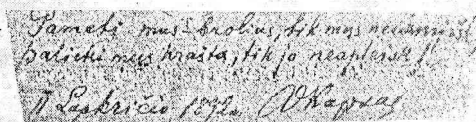 Pameti mus brolius, tik mus neužmiršk
palieki mus kraštą, tik jo neapleisk!
11 Lapkričio 1892 V Kapsas